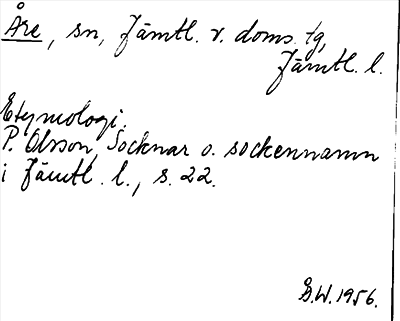 Åre, sn, Jämtl. v. doms. tg,
Jämtl. l.
Etymologi.
P. Olsson, Socknar o. sockennamn
i Jämtl. l., s. 22.
G.W. 1956.